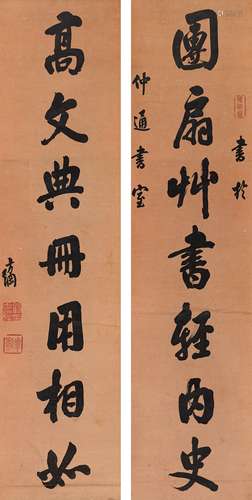 書於
團扇艸書輕內史
仲通書室
高文典冊用相如